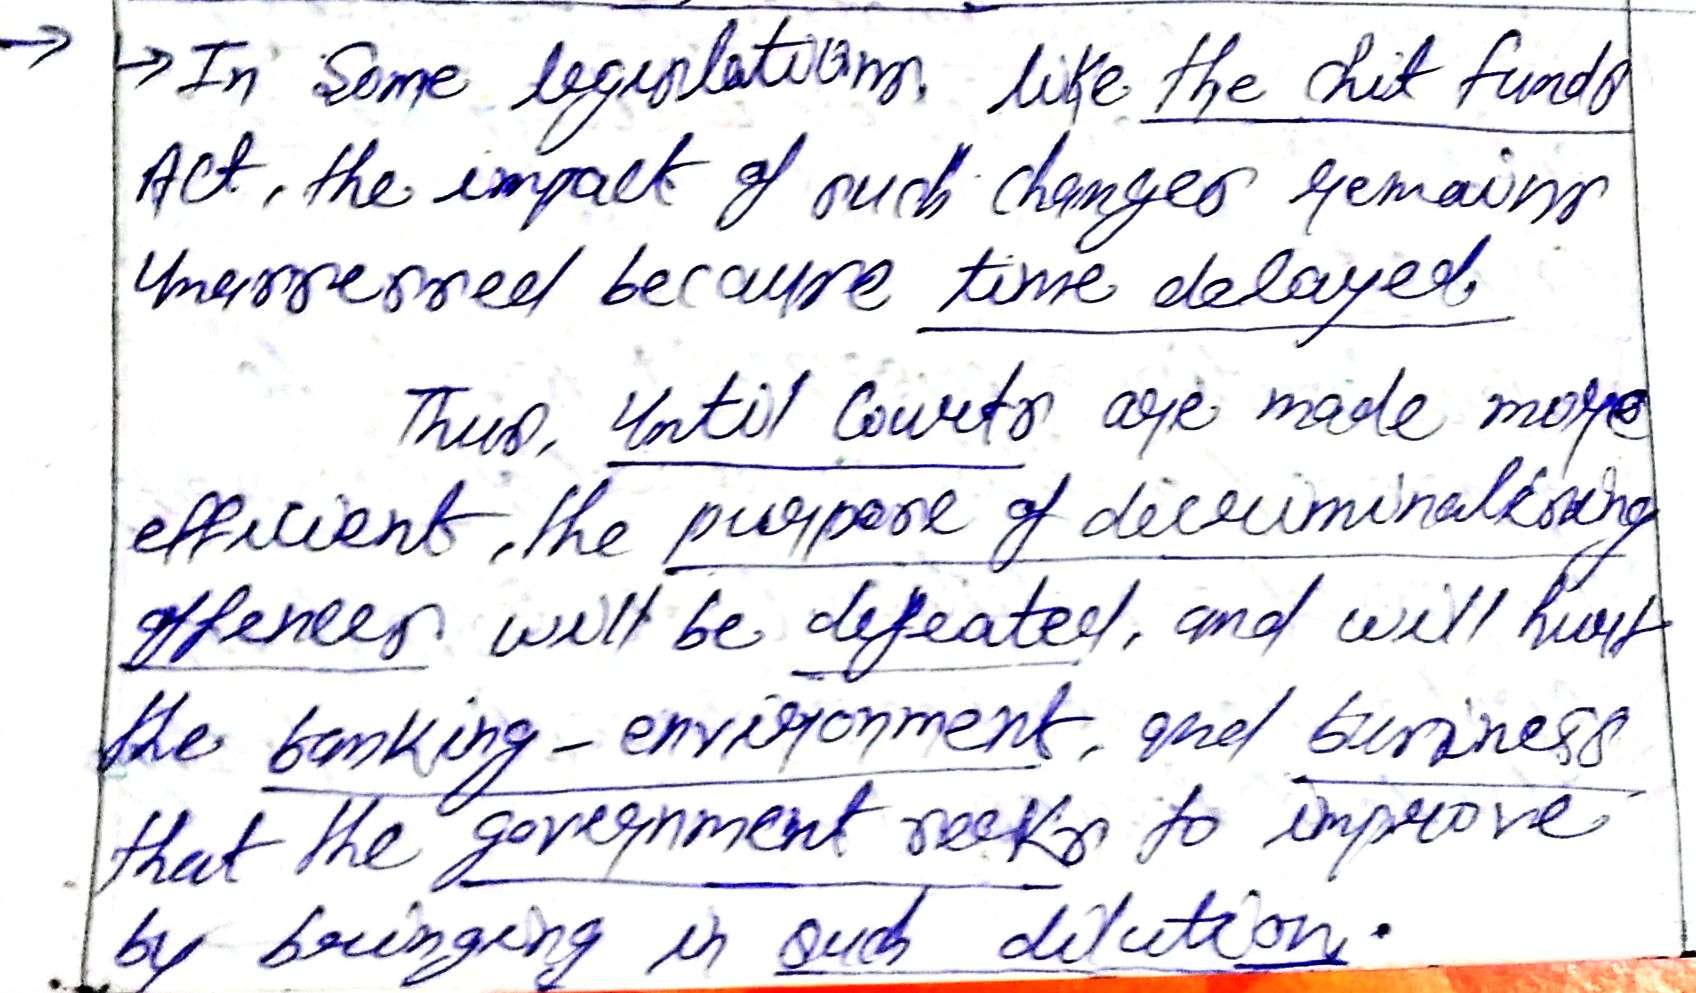 → ↳→ In some legislations, like the chit funds
Act, the impact of such changes remains
unassessed because time delayed.
Thus, until courts are made more
efficient, the purpose of decriminalising
offences will be defeated, and will hurt
the banking - environment, and business
that the government seeks to improve
by bringing in such dilution.